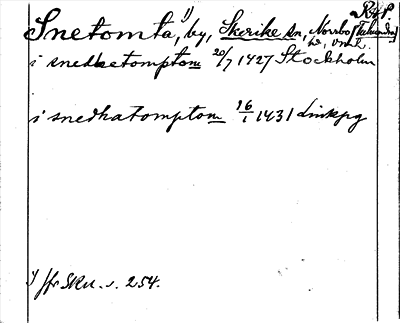 RAP.
Snetomta, 1) by, Skerike sn, Norrbo [Tuhundra]
hd, Vml.
i snedketomptom 20/7 1427 Stockholm
i snedkatomptom 16/1 1431 Linkpg
1) Jfr SRU. s. 254.